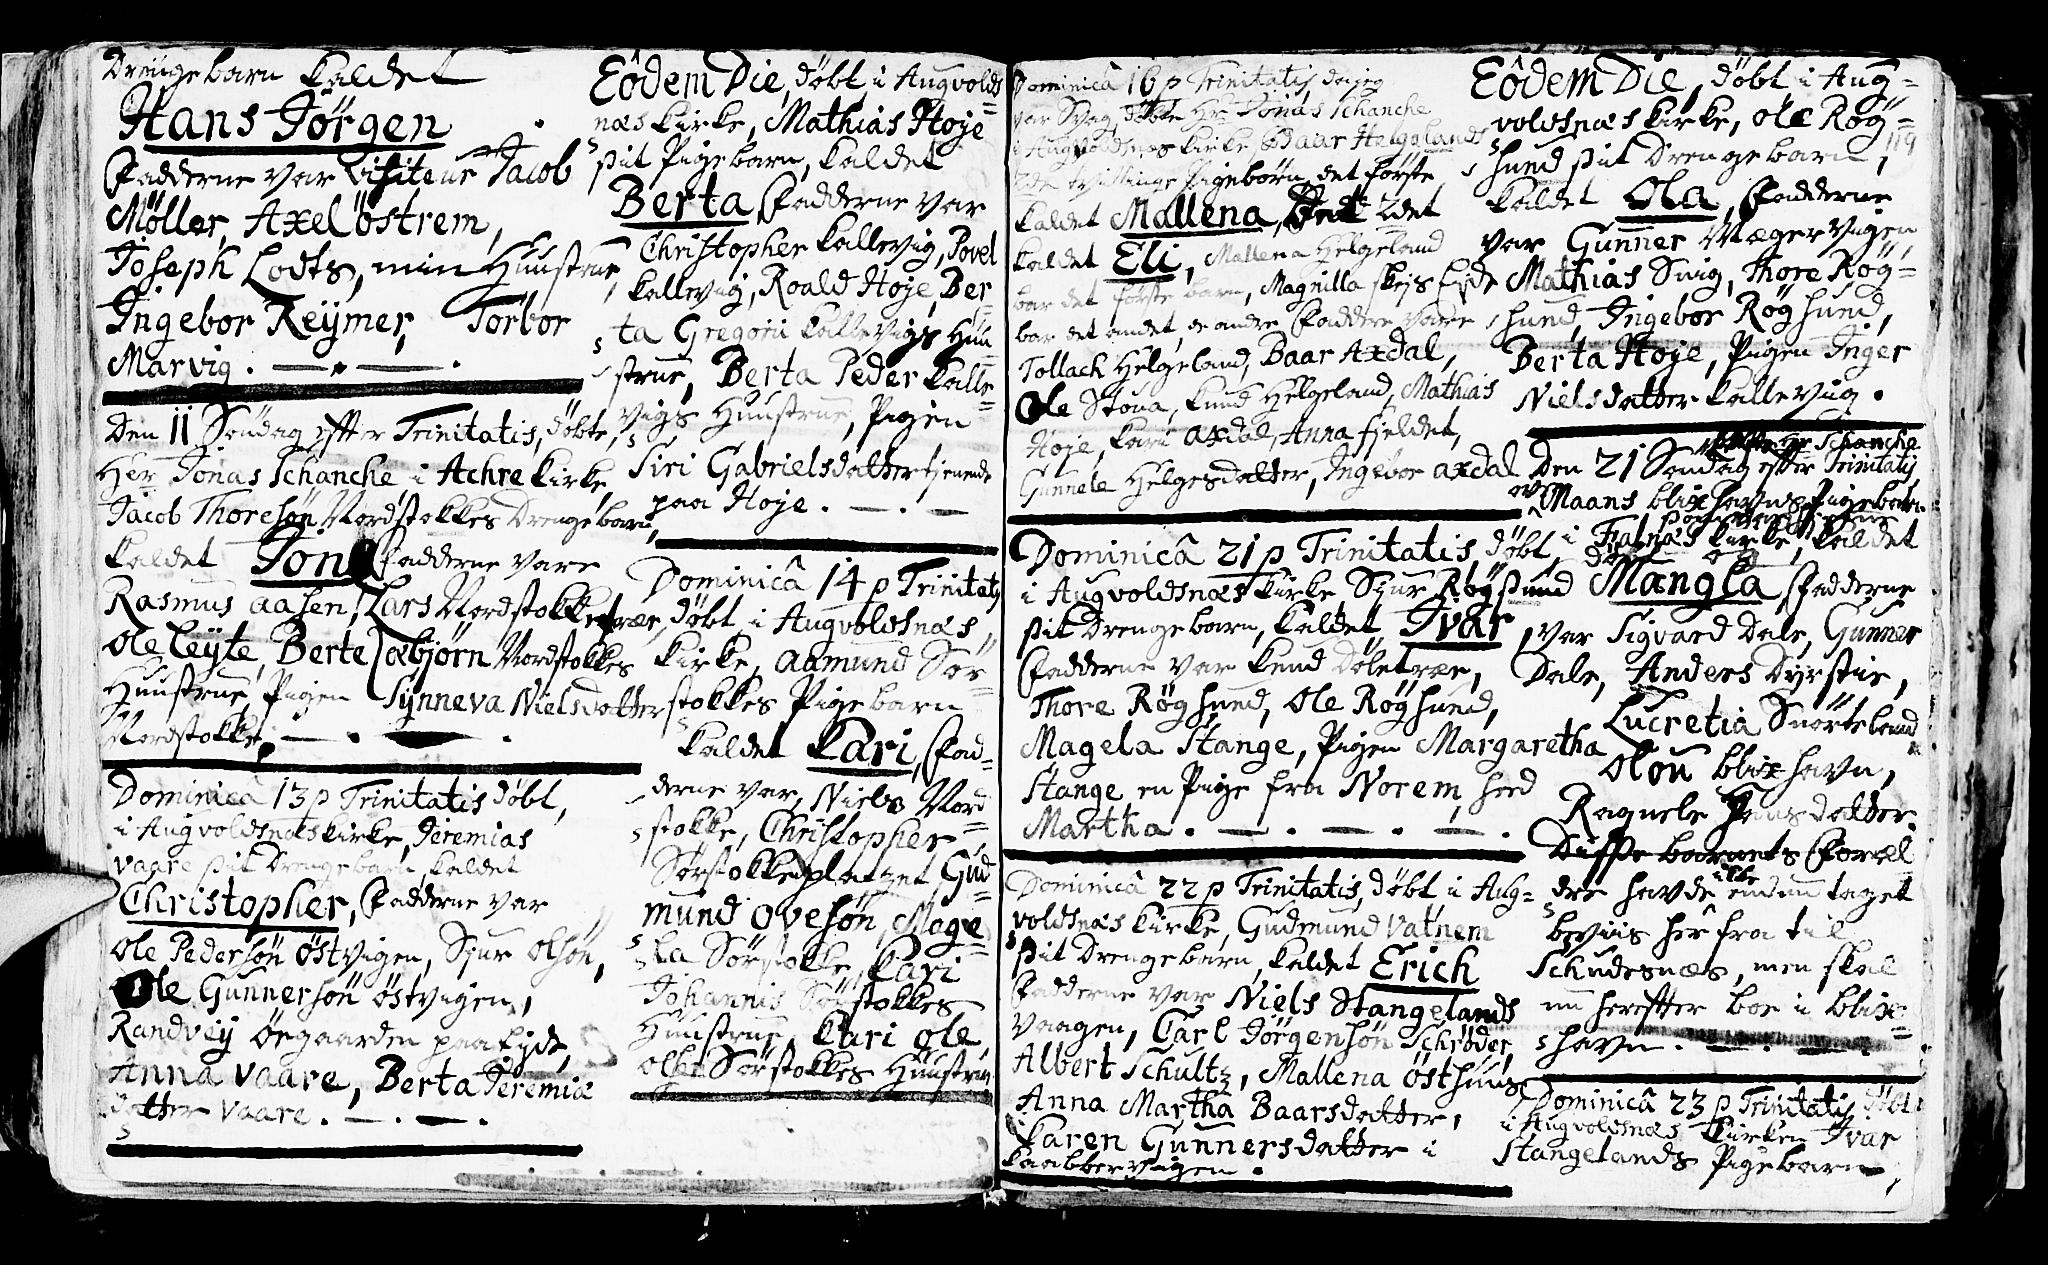 Drengebarn kaldet
Hans Jörgen
Fadderne var Visiteur Jacob
Møller, Axel östrem,
Joseph Lodts, min Huustrue,
Ingebor Reijmer, Torbor
Marvig.
Den 11 Söndag effter Trinitatis, döbte
Her Jonas Schanche i Achre kirke
Jacob Thoresön Nordstokkes Drengebarn,
kaldet Jona Fadderne vare
Rasmus aasen, Lars Nordstokke,
Ole leyte, Berte æbjørn Nordstokkes
Huustrue, Pigen Synneva Nielsdatter
Nordstokke.
Dominicâ 13 p Trinitatis döbt,
i Augvoldsnæs kirke, Jeremias
vaare sit Drengebarn, kaldet
Christopher, Fadderne var
Ole Pedersön östvigen, Sjur olsön,
Ole Gunnersön östvigen,
Randvey öegaarden paa Eyde,
Anna vaare, Berta Jeremiæ
datter vaare.
Eôdem Die, döbt i Augvolds=
næs kirke, Mathias Hoje
sit Pigebarn, kaldet
Berta, Fadderne var
Christopher kallevig, Povel
kallevig, Roald Hoje, Ber=
ta Gregorii kallevigs Huu=
strue, Berta Peder kalle=
vigs Huustrue, Pigen
Siri Gabrielsdatter tjenende
paa Hoje.
Dominicâ 14 p Trinitatis
döbt i Augvoldsnæs
kirke, Aamund Sör=
stokkes Pigebarn
kaldet Kari, Fad=
derne var, Niels Nord=
stokke, Christopher
Sörstokkeplatzet, Gud=
mund ovesön, Mage=
la Sörstokke, Kari
Johannis Sörstokkes
Huustrue, Kari Ole
Sörstokkes Huustrue
Dominicâ 16 p Trinitatis, da jeg
var Svag, döbte Hr Jonas Schanche
i Augvoldsnæs kirke Baar Helgelands
2de tvillinge Pigebörn, det förste
kaldet Mallena, det 2det
kaldet Eli, Mallena Helgeland
bar det förste barn, Magnilla skejs Eyde
bar det andet, de andre Faddere vare
Tollach Helgeland, Baar Axdal,
Ole Stöua, Knud Helgeland, Mathias
Hoje, kari axdal, Anna fjeldet,
Gunnele Helgesdatter, Ingebor axdal
Dominicâ 21 p Trinitatis, döbt
i Augvoldsnæs kirke Sjur Rögsund
sit Drengebarn, kaldet Ivar,
Fadderne var knud Döletræe,
Thore Rögsund, Ole Rögsund,
Magela Stange, Pigen Margaretha
Stange en Pige fra Norem, hed
Martha.
Dominicâ 22 p Trinitatis, döbt i Aug=
voldsnæs kirke, Gudmund Vatnem
sit Drengebarn, kaldet Erich
Fadderne var Niels Stangelands
vaagen, Carl Jörgensön Schröder,
Albert Schultz, Mallena östhuus
Anna Martha Baarsdatter,
Karen Gunnersdatter i
kaabbervigen.
119
Eôdem Die, döbt i Aug=
voldsnæs kirke, Ole Rög=
sund sit Drengebarn,
kaldet Ola, Fadderne
var Gunner Mægervigen,
Mathias Svig, Thore Rög=
sund, Ingebor Rögsund,
Berta Hoje, Pigen Inger
Nielsdatter kallevig.
döbte Hr Schanche
Den 21 Söndag effter Trinitatis
Maans blixhavns Pigebarn
i Falnæs kirke, kaldet
Mangla, Fadderne
var Sigvard Dale, Gunner
Dale, Anders Dyrstie,
Lucretia Snörteland
Olou blixhavn,
Ragnele Hansdatter.
Disse barnets Foræl
dre havde ikke endnu taget
beviis her fra til
Schudesnæs, men skal
nu hereffter boe i Blix=
havn.
Dominicâ 23 p Trinitatis, döbt
i Augvoldsnæs kirken Ivar
Stangelands Pigebarn,